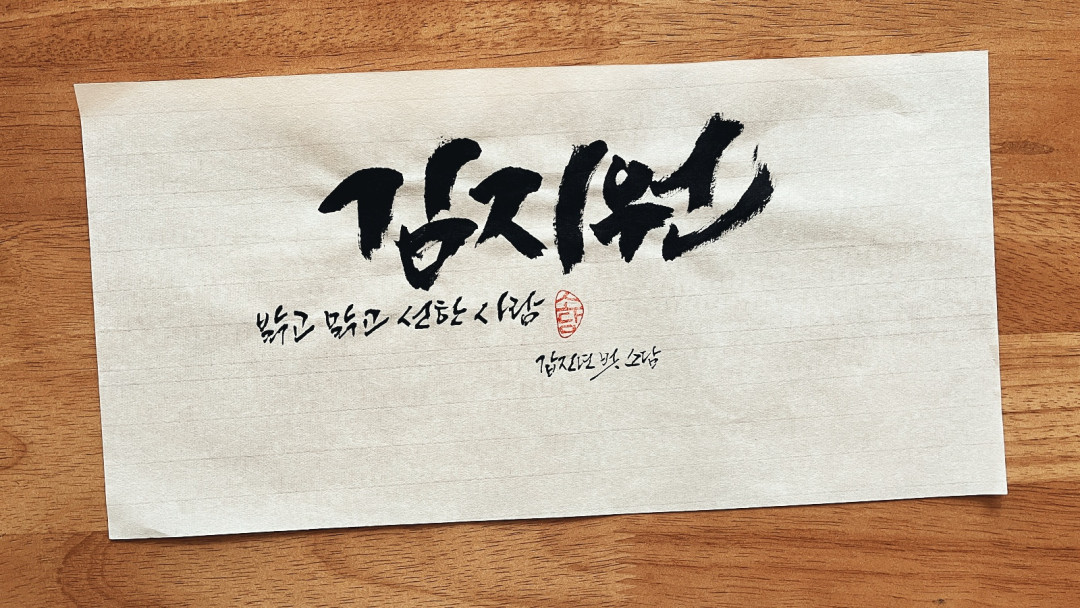 김지원
밝고 맑고 선한 사람
소담
갑진년 벗 소담